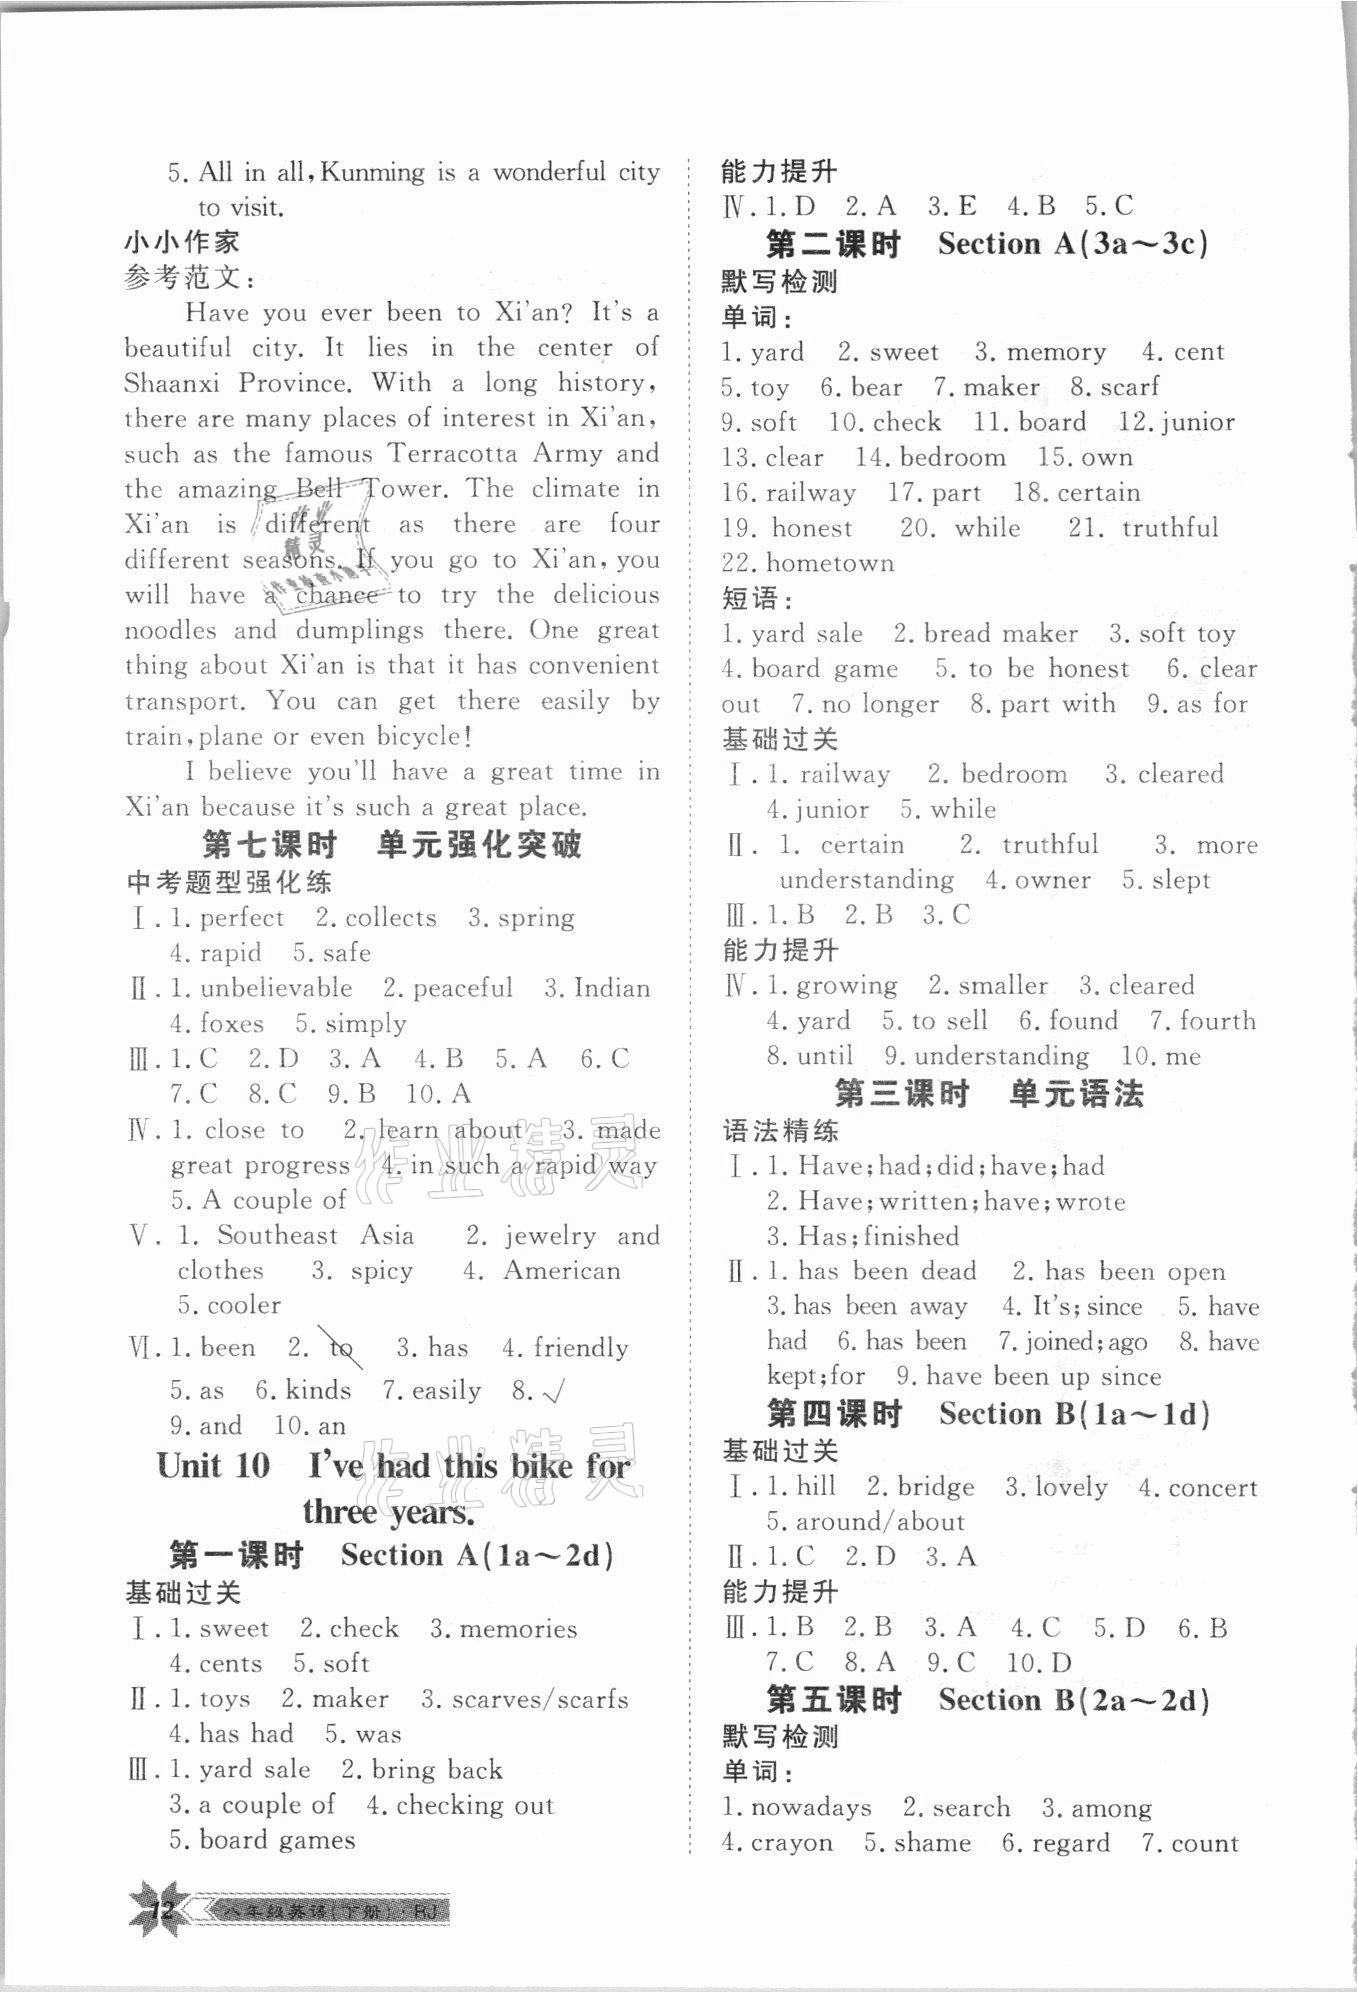 5. All in all, Kunming is a wonderful city
to visit.
小小作家
参考范文:
Have you ever been to Xi'an? It's a
beautiful city. It lies in the center of
Shaanxi Province. With a long history,
there are many places of interest in Xi'an,
such as the famous Terracotta Army and
the amazing Bell Tower. The climate in
Xi'an is different as there are four
different seasons. If you go to Xi'an, you
will have a chance to try the delicious
noodles and dumplings there. One great
thing about Xi'an is that it has convenient
transport. You can get there easily by
train, plane or even bicycle!
I believe you'll have a great time in
Xi'an because it's such a great place.
第七课时 单元强化突破
中考题型强化练
Ⅰ. 1. perfect 2. collects 3. spring
4. rapid 5. safe
Ⅱ. 1. unbelievable 2. peaceful 3. Indian
4. foxes 5. simply
Ⅲ. 1. C 2. D 3. A 4. B 5. A 6. C
7. C 8. C 9. B 10. A
Ⅳ. 1. close to 2. learn about 3. made
great progress 4. in such a rapid way
5. A couple of
Ⅴ. 1. Southeast Asia 2. jewelry and
clothes 3. spicy 4. American
5. cooler
Ⅵ. 1. been 2. to 3. has 4. friendly
5. as 6. kinds 7. easily 8. √
9. and 10. an
Unit 10 I've had this bike for
three years.
第一课时 Section A(1a～2d)
基础过关
Ⅰ. 1. sweet 2. check 3. memories
4. cents 5. soft
Ⅱ. 1. toys 2. maker 3. scarves/scarfs
4. has had 5. was
Ⅲ. 1. yard sale 2. bring back
3. a couple of 4. checking out
5. board games
12 八年级英语(下册)·RJ
能力提升
Ⅳ. 1. D 2. A 3. E 4. B 5. C
第二课时 Section A(3a～3c)
默写检测
单词:
1. yard 2. sweet 3. memory 4. cent
5. toy 6. bear 7. maker 8. scarf
9. soft 10. check 11. board 12. junior
13. clear 14. bedroom 15. own
16. railway 17. part 18. certain
19. honest 20. while 21. truthful
22. hometown
短语:
1. yard sale 2. bread maker 3. soft toy
4. board game 5. to be honest 6. clear
out 7. no longer 8. part with 9. as for
基础过关
Ⅰ. 1. railway 2. bedroom 3. cleared
4. junior 5. while
Ⅱ. 1. certain 2. truthful 3. more
understanding 4. owner 5. slept
Ⅲ. 1. B 2. B 3. C
能力提升
Ⅳ. 1. growing 2. smaller 3. cleared
4. yard 5. to sell 6. found 7. fourth
8. until 9. understanding 10. me
第三课时 单元语法
语法精练
Ⅰ. 1. Have; had; did; have; had
2. Have; written; have; wrote
3. Has; finished
Ⅱ. 1. has been dead 2. has been open
3. has been away 4. It's; since 5. have
had 6. has been 7. joined; ago 8. have
kept; for 9. have been up since
第四课时 Section B(1a～1d)
基础过关
Ⅰ. 1. hill 2. bridge 3. lovely 4. concert
5. around/about
Ⅱ. 1. C 2. D 3. A
能力提升
Ⅲ. 1. B 2. B 3. A 4. C 5. D 6. B
7. C 8. A 9. C 10. D
第五课时 Section B(2a～2d)
默写检测
单词:
1. nowadays 2. search 3. among
4. crayon 5. shame 6. regard 7. count
作业精灵
作业精灵
作业
精灵